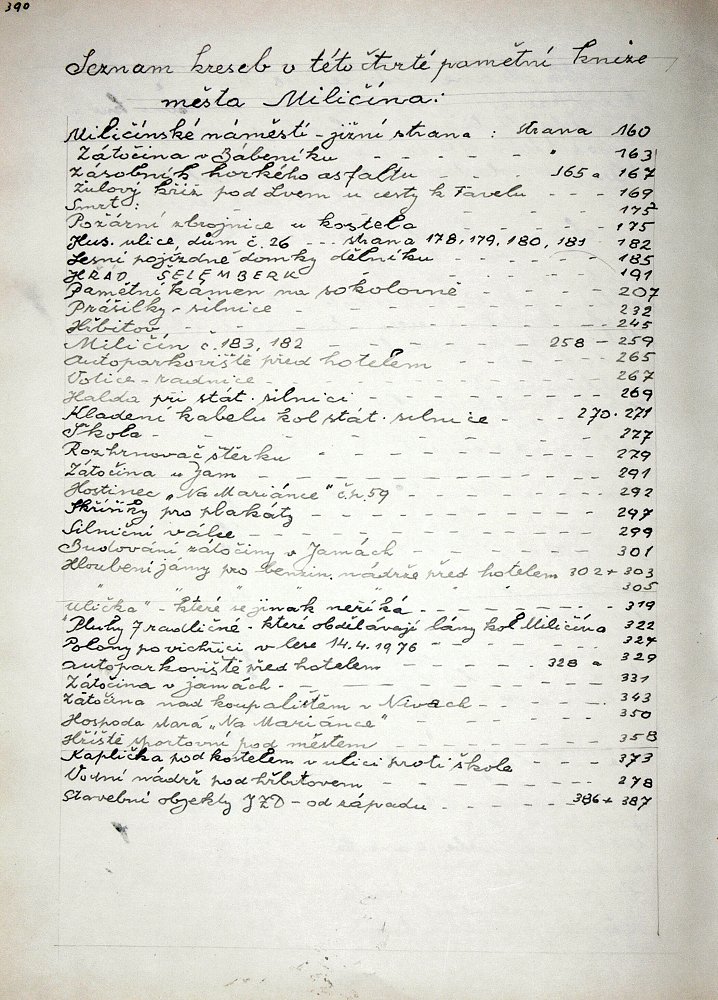 390
Seznam kreseb v této čtvrté pamětní knize
města Miličína:
Miličínské náměstí - jižní strana : strana 160
Zátočina v Bábeníku - - - - - " 163
Zásobník horkého asfaltu - - - 165 a 167
Žulový kříž pod Lvem u cesty k Favelu - - - 169
Smrt: - - - 175
Požární zbrojnice u kostela - - - - - 175
Hus. ulice, dům č. 26 - - - strana 178, 179, 180, 181 - 182
Lesní pojízdné domky dělníku - - - - - 185
HRAD ŠELEMBERK - - - - - 191
Pamětní kámen na sokolovně - - - - - 207
Prášilky - silnice - - - - - 232
Hřbitov - - - - - 245
Miličín č. 183, 182 - - - 258 - 259
Autoparkoviště před hotelem - - - - - 265
Votice - radnice - - - - - 267
Halda při stát. silnici - - - - - 269
Kladení kabelu kol stát. silnice - - - 270 - 271
Škola - - - - - 277
Rozhrnovač štěrku - - - - - 279
Zátočina u Jam - - - - - 291
Hostinec „Na Mariánce" č.p. 59 - - - - - 292
Skříňky pro plakáty - - - - - 297
Silniční válec - - - - - 299
Budování zátočiny v Jamách - - - - - 301
Hloubení jámy pro benzin. nádrže před hotelem 302 + 303
" " " " " 305
„Ulička" - které se jinak neříká - - - - - 319
Pluhy 7 radličné - které obdělávají lány kol Miličína 322
Polomy po vichřici v lese 14.4.1976 - - - - - 324
Autoparkoviště před hotelem - - - 328 a 329
Zátočina v jamách - - - - - 331
Zátočina nad koupalištěm v Nivách - - - - - 343
Hospoda stará „Na Mariánce" - - - - - 350
Hřiště sportovní pod městem - - - - - 358
Kaplička pod kostelem v ulici proti škole - - - 373
Vodní nádrž pod hřbitovem - - - - - 278
Stavební objekty JZD - od západu - - - 386 + 387